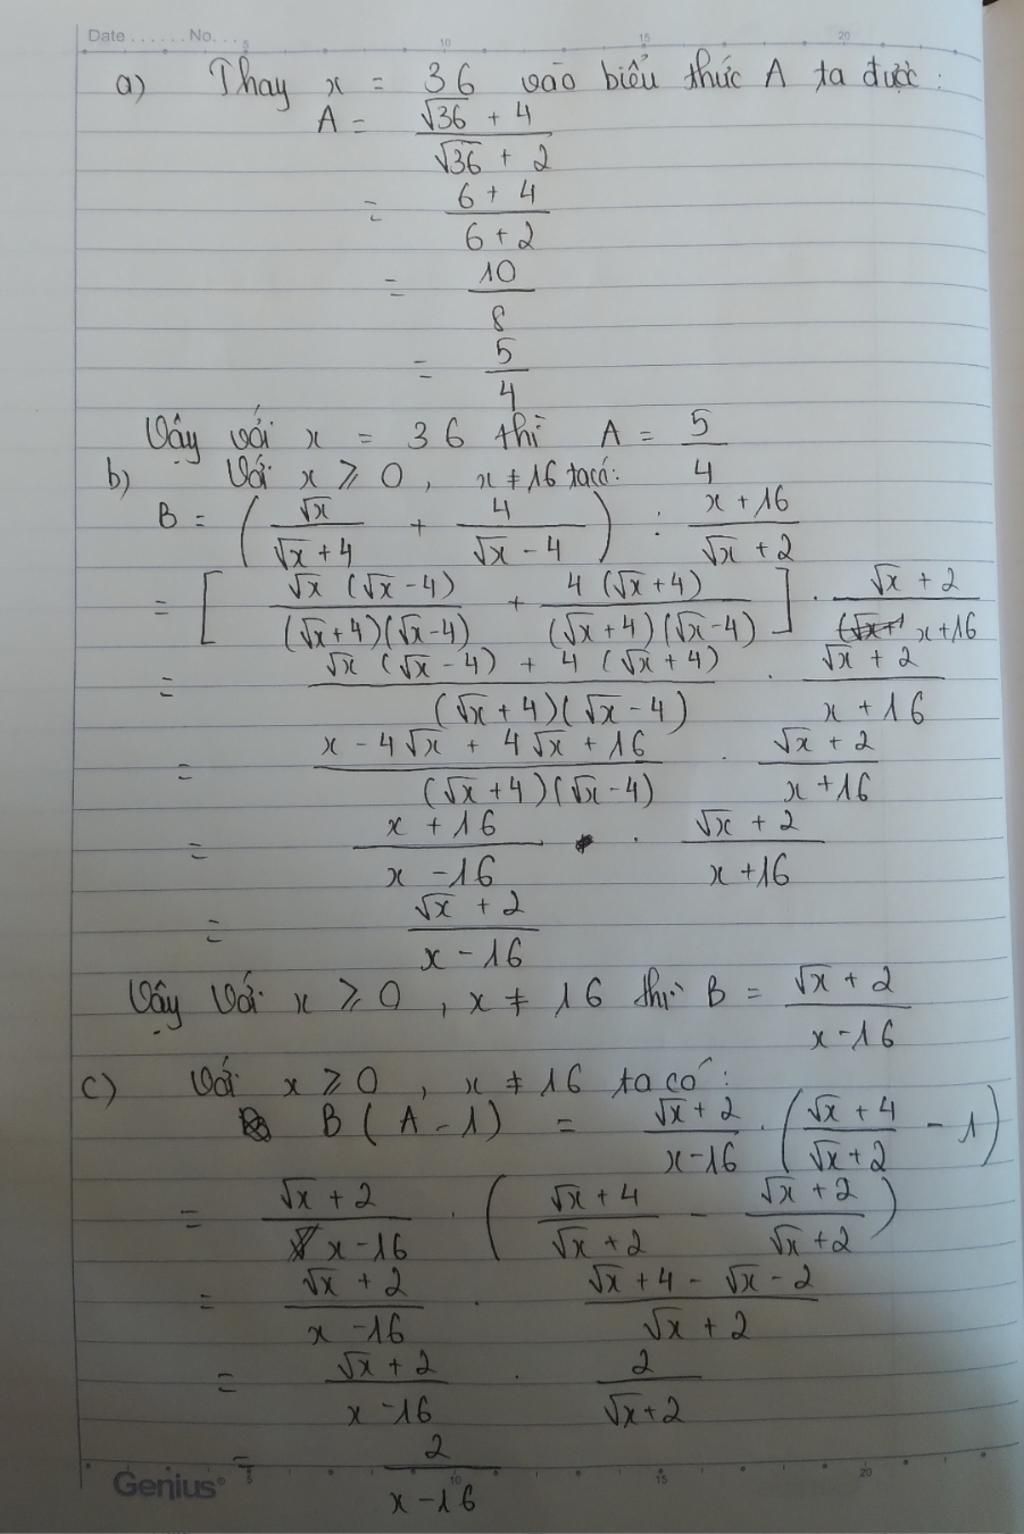 Date ...... No. ...
5 10 15 20
a) Thay x = 36 vào biểu thức A ta được:
A = (√36 + 4)/(√36 + 2)
= (6 + 4)/(6 + 2)
= 10/8
= 5/4
Vậy với x = 36 thì A = 5/4
b) Với x ⩾ 0, x ≠ 16 ta có:
B = (√x/(√x + 4) + 4/(√x - 4)) : (x + 16)/(√x + 2)
= [√x (√x - 4)/((√x + 4)(√x - 4)) + 4 (√x + 4)/((√x + 4)(√x - 4))] . (√x + 2)/(x + 16)
= (√x (√x - 4) + 4 (√x + 4))/((√x + 4)(√x - 4)) . (√x + 2)/(x + 16)
= (x - 4√x + 4√x + 16)/((√x + 4)(√x - 4)) . (√x + 2)/(x + 16)
= (x + 16)/(x - 16) . (√x + 2)/(x + 16)
= (√x + 2)/(x - 16)
Vậy với x ⩾ 0, x ≠ 16 thì B = (√x + 2)/(x - 16)
c) Với x ⩾ 0, x ≠ 16 ta có:
B (A - 1) = (√x + 2)/(x - 16) . ((√x + 4)/(√x + 2) - 1)
= (√x + 2)/(x - 16) . ((√x + 4)/(√x + 2) - (√x + 2)/(√x + 2))
= (√x + 2)/(x - 16) . (√x + 4 - √x - 2)/(√x + 2)
= (√x + 2)/(x - 16) . 2/(√x + 2)
= 2/(x - 16)
Genius 5 10 15 20